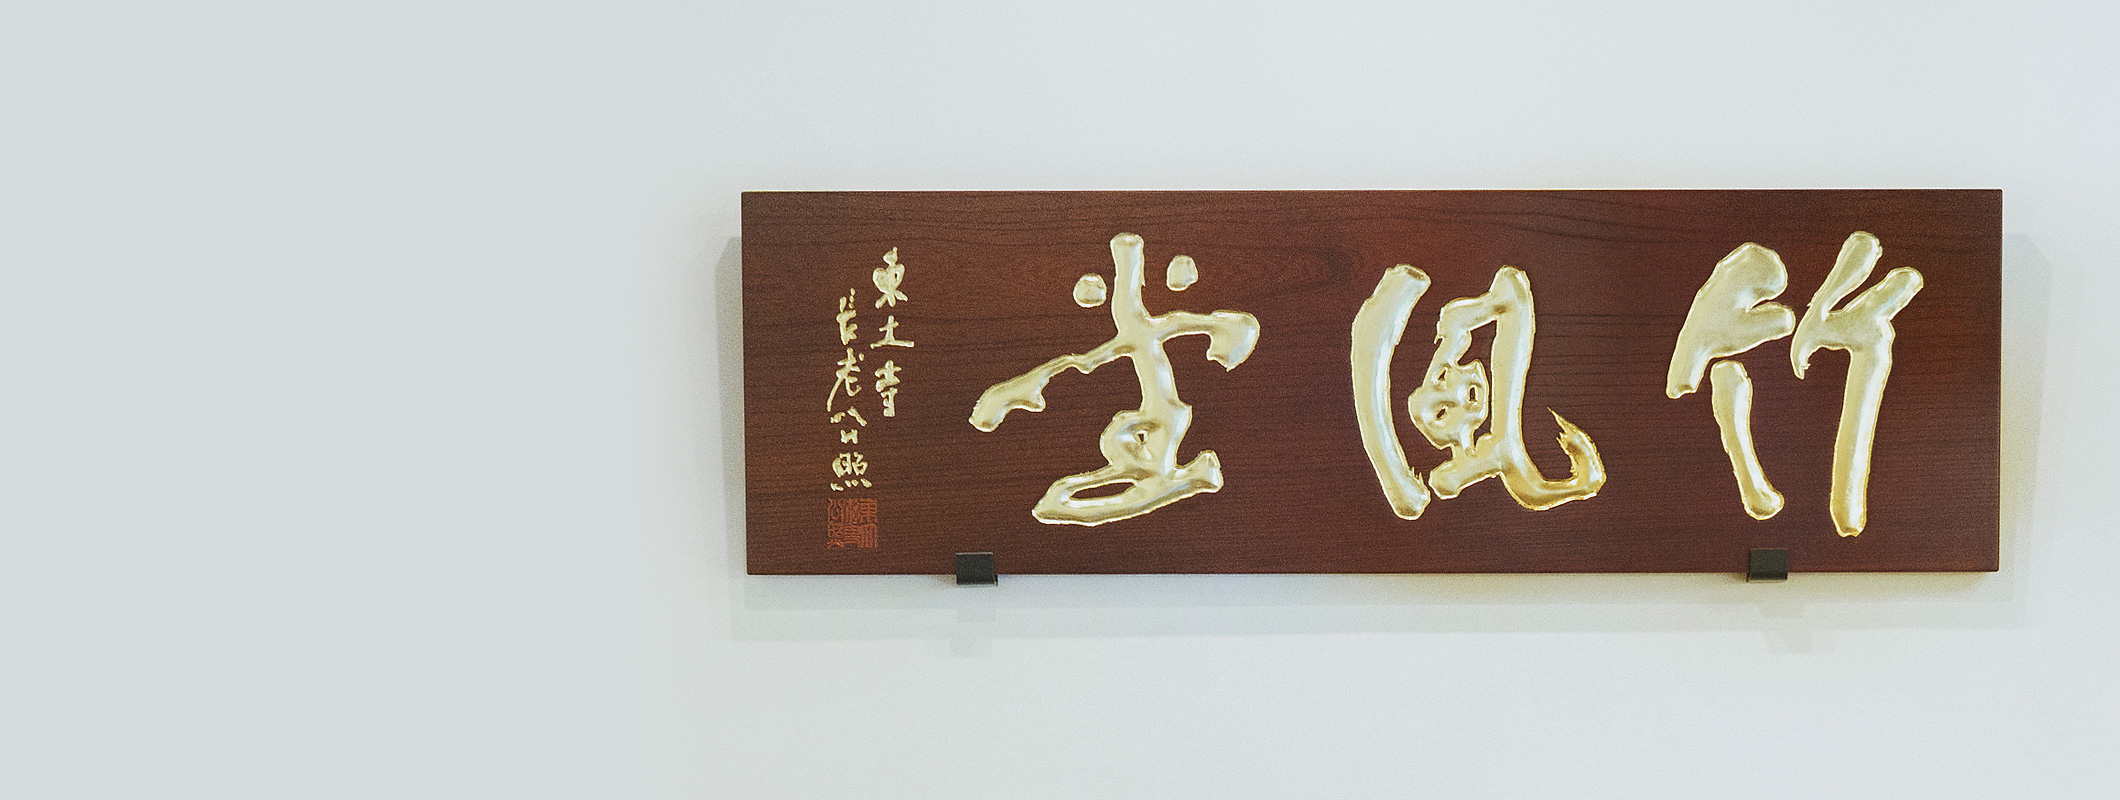 竹風堂
東大寺
長老公照